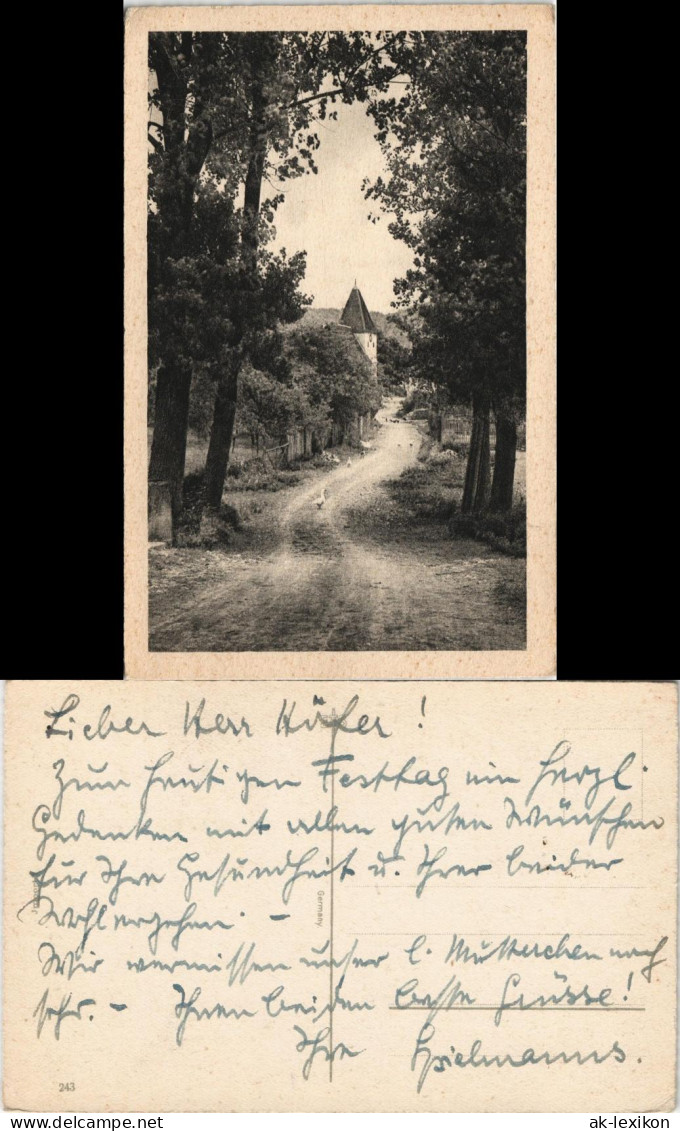 Lieber Herr Höfer!
Zum heutigen Festtag ein herzl.
Gedenken mit allen guten Wünschen
für Ihre Gesundheit u. Ihrer beider
Wohlergehen. -
Wir vermissen unser l. Mütterchen noch
sehr. - Ihnen beiden beste Grüsse!
Ihre Spielmanns.
Germany
243
www.delcampe.net
ak-lexikon